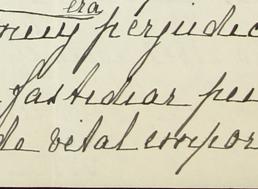 era
muy perjudic
fastidiar pu
de vital impor